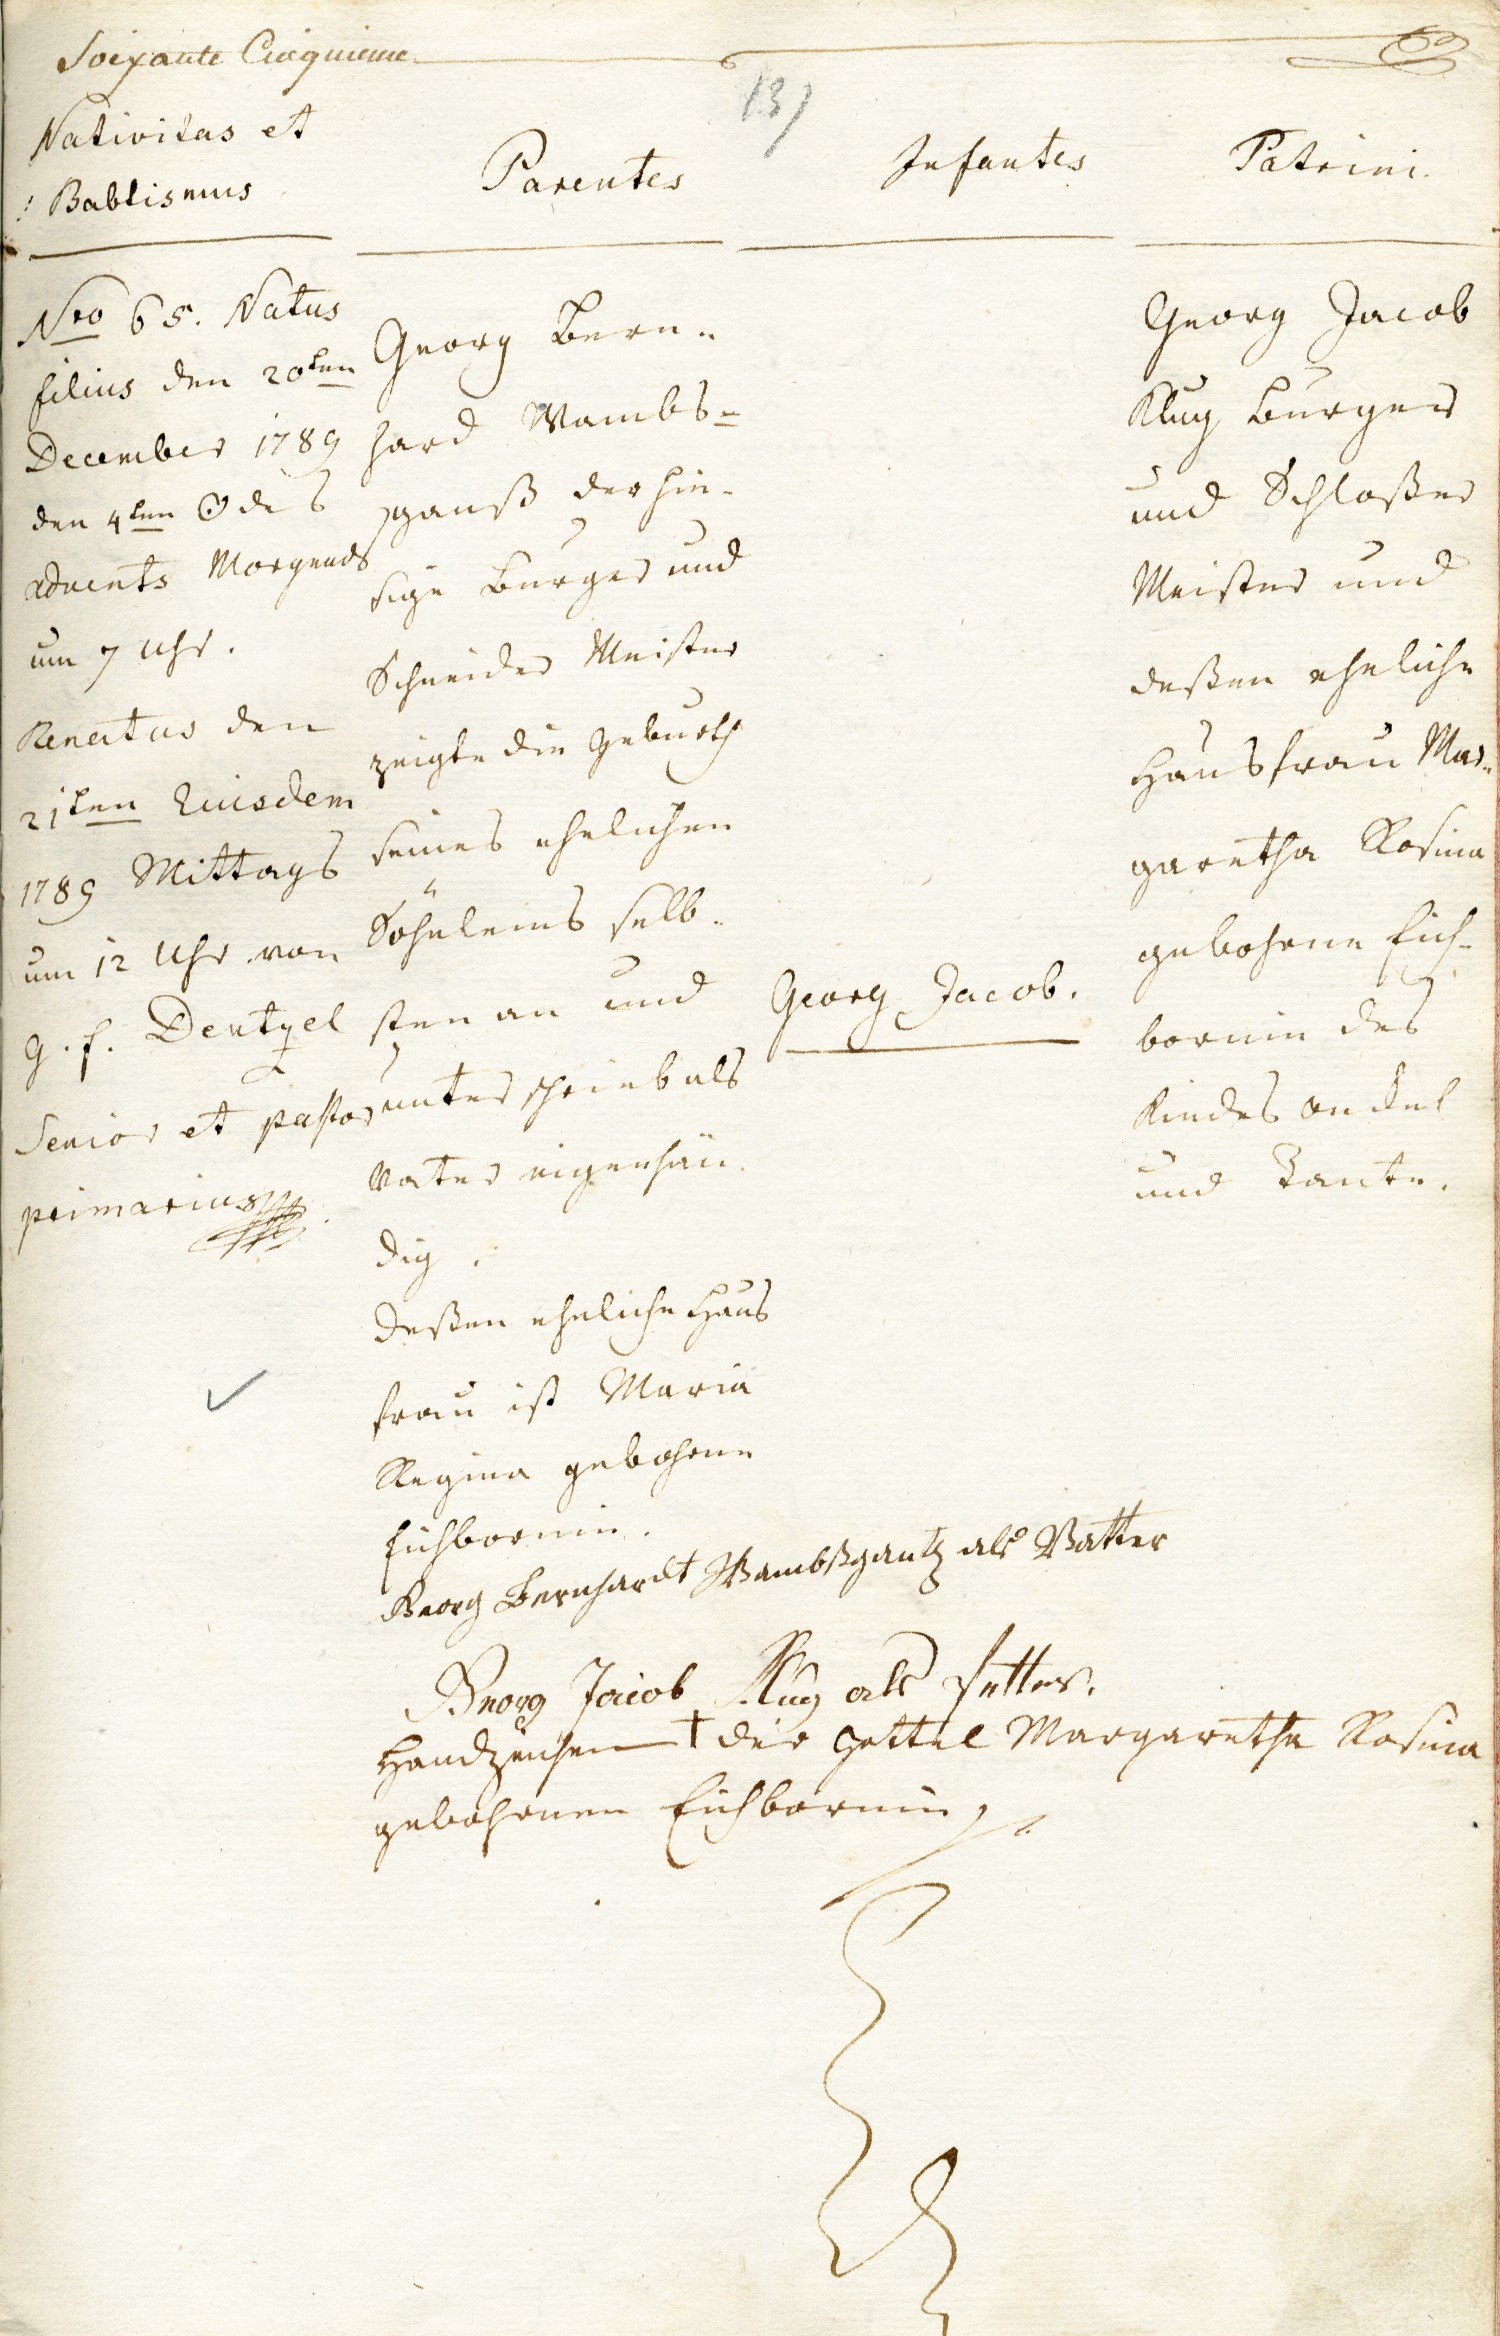 Soixante Cinquieme
137
Nativitas et
Babtismus
Parentes
Infantes
Patrini.
Nro 65. Natus
filius den 20ten
December 1789
den 4ten ☉ des
advents Morgends
um 7 Uhr.
Renatus den
21ten Eiusdem
1789 Mittags
um 12 Uhr von
G. f. Dentzel
Senior et pastor
primarius
Georg Bern-
hard Wambs-
ganß der hie-
sige Burger und
Schneider Meister
zeigte die Geburth
seines ehelichen
Söhnleins selb-
sten an und
unterschrieb als
Vater eigenhän-
dig.
deßen eheliche Haus
frau ist Maria
Regina gebohrne
Eichbornin.
Georg Jacob.
Georg Jacob
Klug Burger
und Schloßer
Meister und
deßen eheliche
Hausfrau Mar-
garetha Rosina
gebohrne Eich-
bornin des
Kindes onckel
und Tante.
Georg Bernhardt Wambßgantz als Vatter
Georg Jacob Klug als Petter.
Handzeichen † der Gettel Margaretha Rosina
gebohrnen Eichbornin